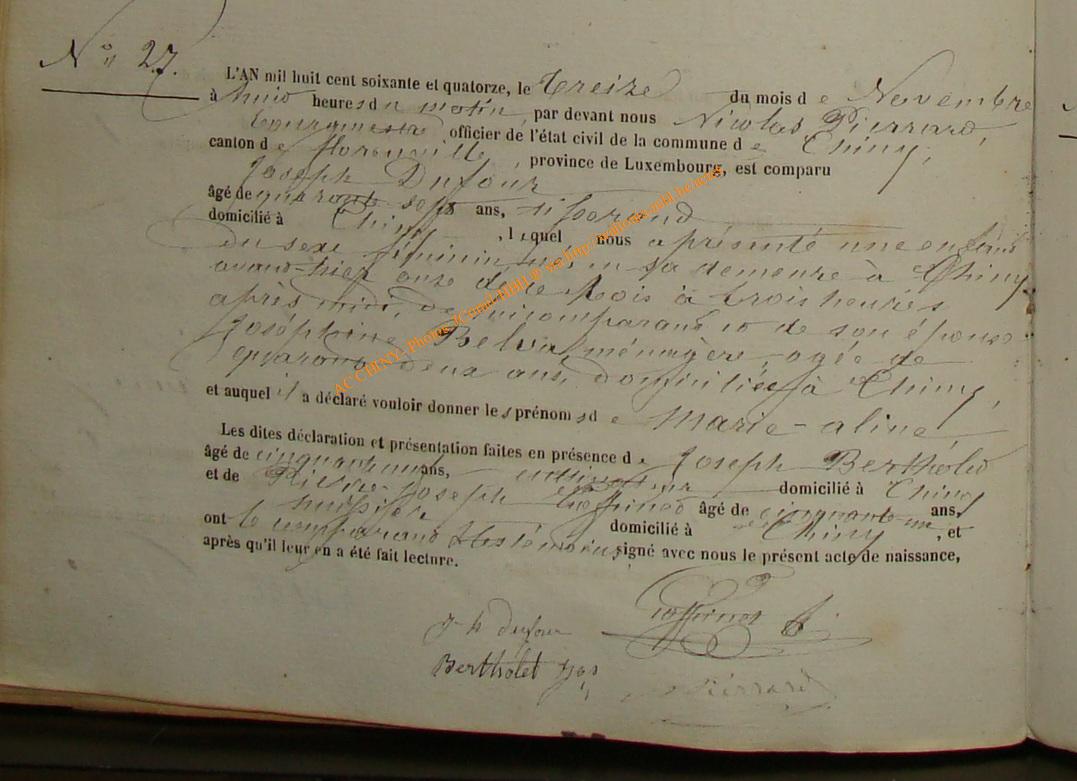 N° 27.
L'AN mil huit cent soixante et quatorze, le treize du mois de Novembre
à huit heures du matin, par devant nous Nicolas Pierrard,
bourgmestre officier de l'état civil de la commune de Chiny,
canton de florenville, province de Luxembourg, est comparu
Joseph Dufour
âgé de quarante sept ans, tisserand
domicilié à Chiny, lequel nous a présenté une enfant
du sexe féminin née en sa demeure à Chiny
avant-hier onze de ce mois à trois heures
après midi, de lui comparant et de son épouse
Joséphine ménagère, agée de
quarante deux ans, domiciliée à Chiny,
et auquel il a déclaré vouloir donner les prénoms de Marie-aline,
Les dites déclaration et présentation faites en présence de Joseph Bertholet
âgé de cinquante un ans, domicilié à Chiny
et de Pierre-Joseph âgé de cinquante un ans,
domicilié à Chiny, et
ont le comparant et les témoins signé avec nous le présent acte de naissance,
après qu'il leur en a été fait lecture.
Jh dufour
Bertholet
Pierrard
ACCHINY- Photos